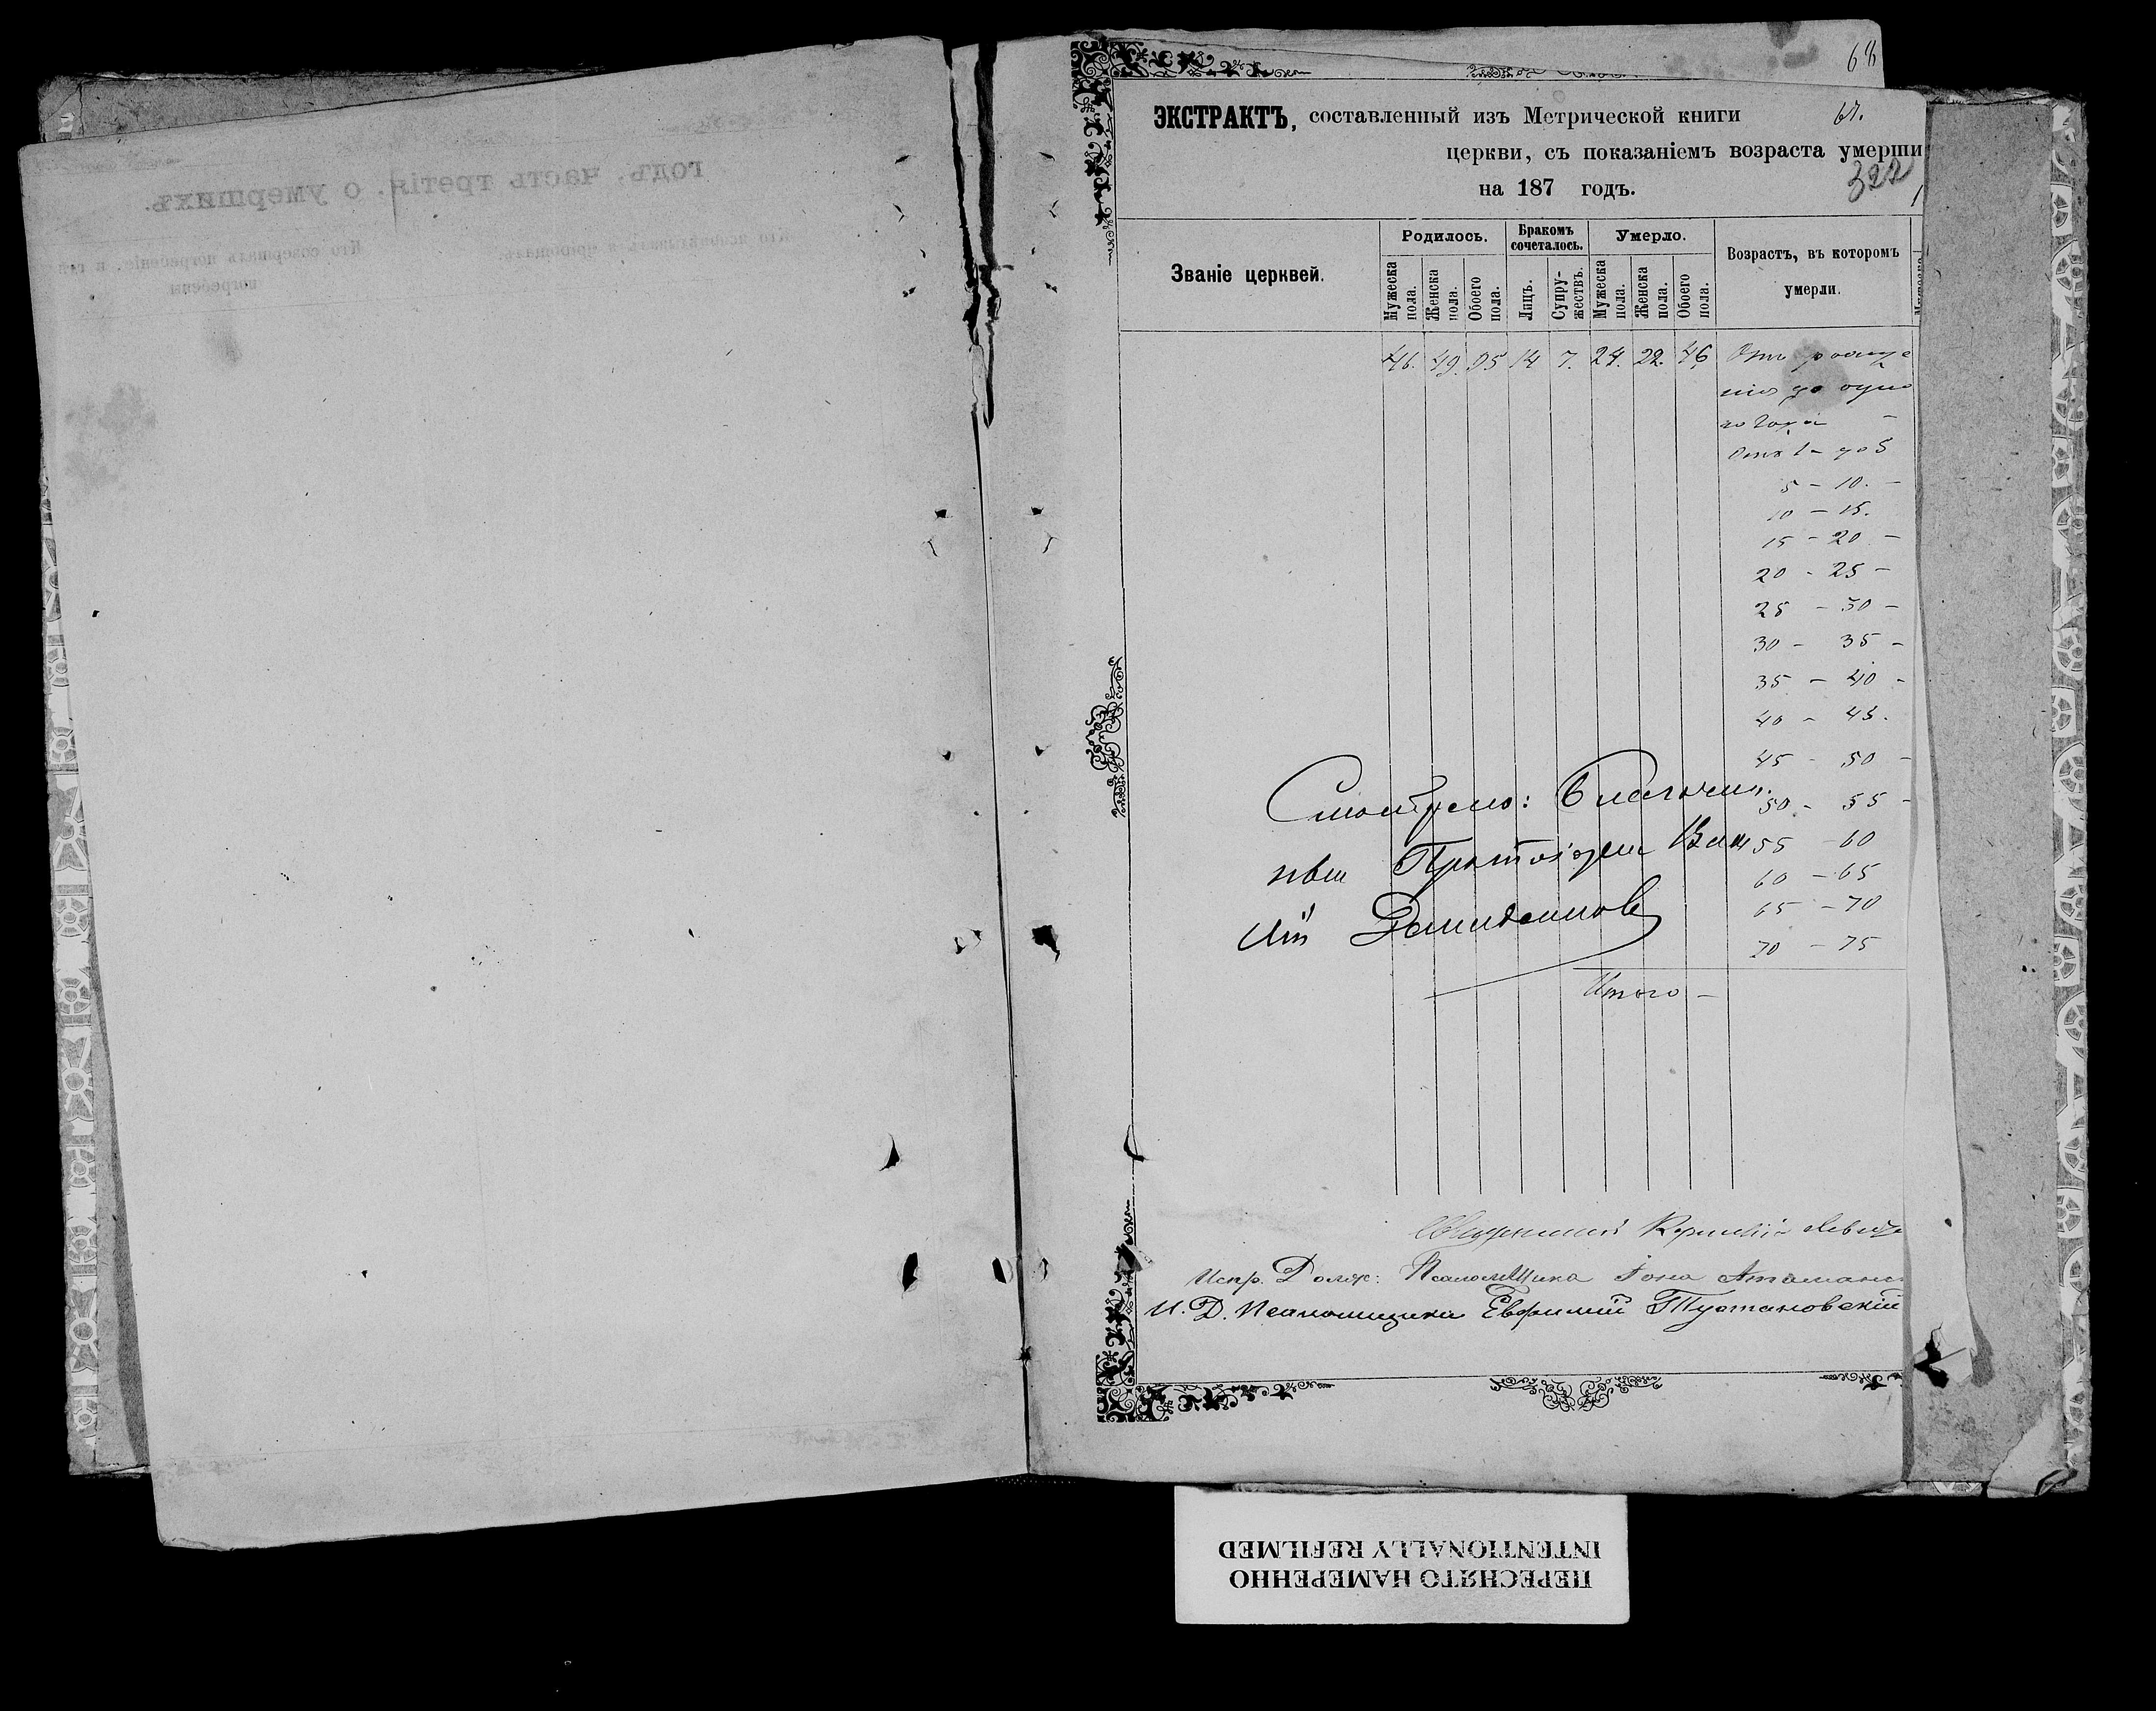 68
ЭКСТРАКТЪ, составленный изъ Метрической книги
67.
церкви, съ показаніемъ возраста умерши
322
на 187 годъ.
Званіе церквей.
Родилось.
Мужеска пола.
Женска пола.
Обоего пола.
Бракомъ сочеталось.
Лицъ.
Супру-жествъ.
Умерло.
Мужеска пола.
Женска пола.
Обоего пола.
Возрастъ, въ которомъ
умерли.
46. 49. 95 14 7. 24. 22. 46 Отъ рожде
нія до одно
го года –
Отъ 1 – до 5
5 – 10. –
10 – 15.
15 – 20. –
20 – 25 –
25 – 30 –
30 – 35 –
35 – 40 –
40 – 45.
45 – 50 –
50 – 55 –
55 – 60
60 – 65
65 – 70
70 – 75
Итого –
Смотрено: Благочин.
Священник Корнилій
Испр. Долж: Псаломщика Іона Атаманс
И. Д. Псаломщика Евфимій Тустановскій
годъ. часть третія. о умершихъ.
Кто совершалъ погребеніе, и гдѣ
погребены
ПЕРЕСНЯТО НАМЕРЕННО
INTENTIONALLY REFILMED